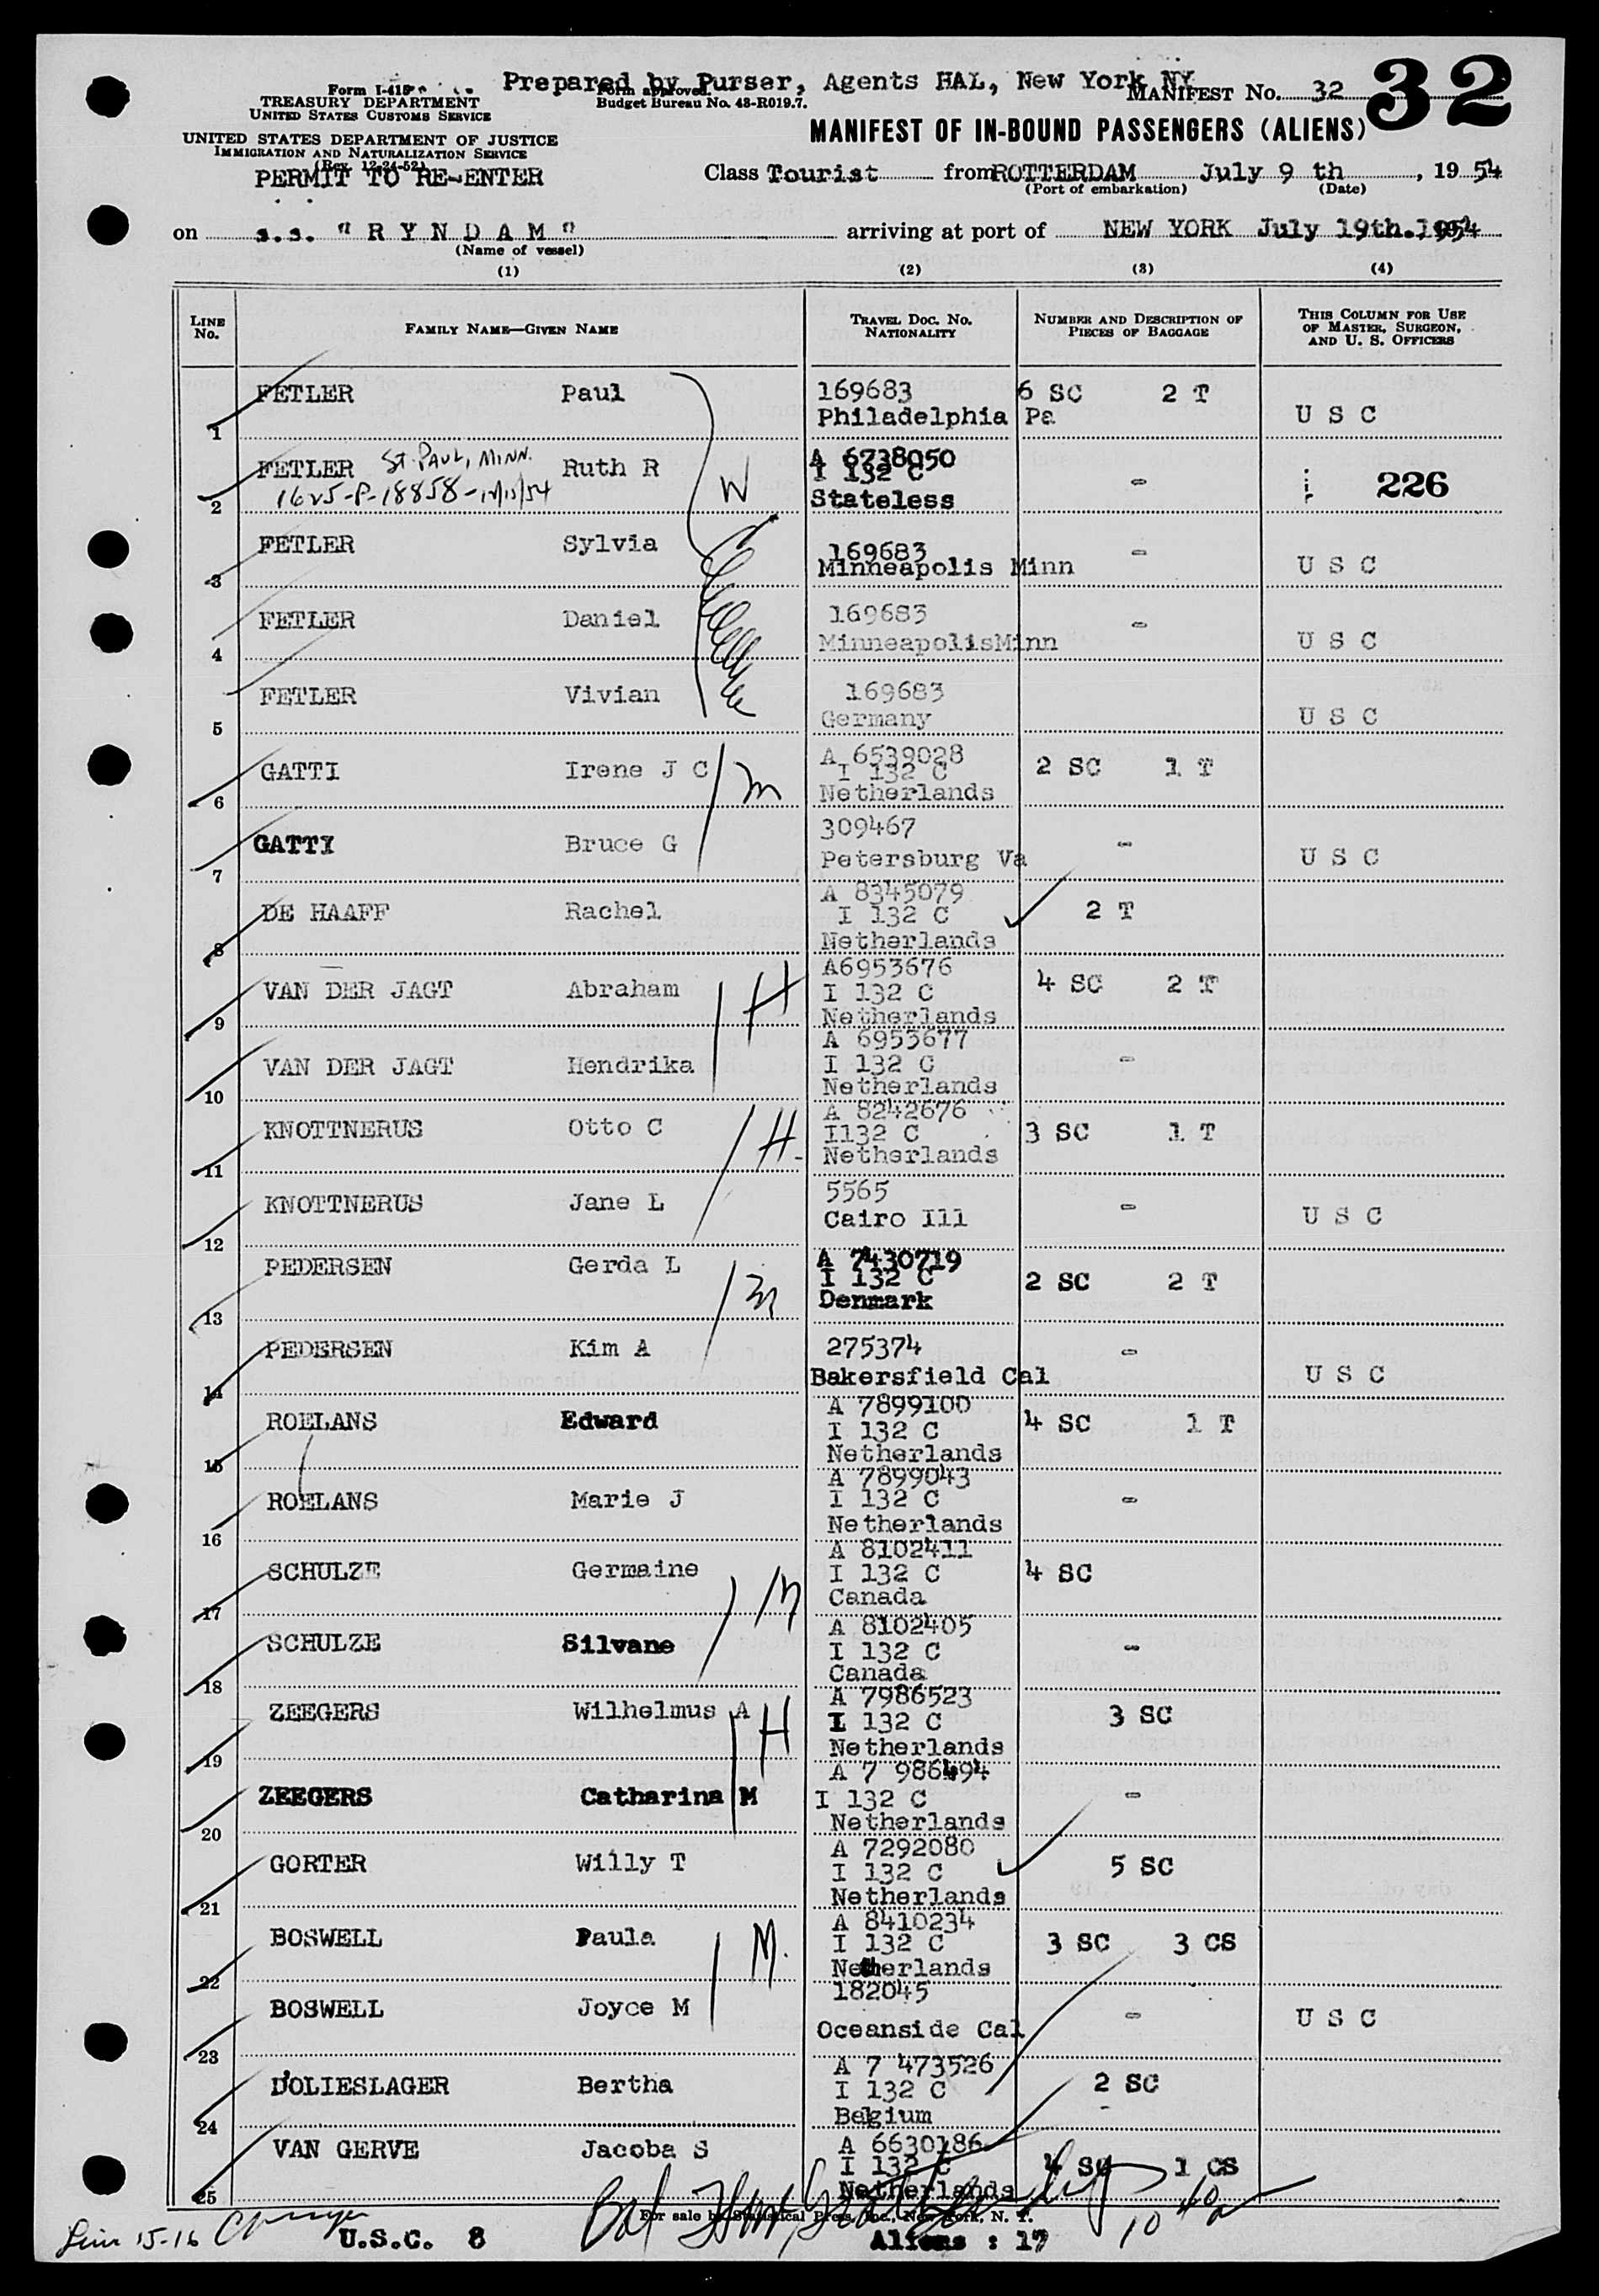 Prepared by Purser, Agents HAL, New York NY
Form I-418
TREASURY DEPARTMENT
UNITED STATES CUSTOMS SERVICE
UNITED STATES DEPARTMENT OF JUSTICE
IMMIGRATION AND NATURALIZATION SERVICE
(Rev. 12-24-52)
PERMIT TO RE-ENTER
Form approved.
Budget Bureau No. 43-R019.7.
MANIFEST NO. 32
32
MANIFEST OF IN-BOUND PASSENGERS (ALIENS)
Class Tourist from ROTTERDAM July 9 th , 19 54
(Port of embarkation) (Date)
on s.s. "R Y N D A M" arriving at port of NEW YORK July 19th. 1954
(Name of vessel)
(1) (2) (3) (4)
LINE NO. FAMILY NAME—GIVEN NAME TRAVEL DOC. NO. NATIONALITY NUMBER AND DESCRIPTION OF PIECES OF BAGGAGE THIS COLUMN FOR USE OF MASTER, SURGEON, AND U. S. OFFICERS
1 FETLER Paul 169683 6 SC 2 T
Philadelphia Pa U S C
2 FETLER St. PAUL, MINN. Ruth R A 6738050 - 226
1625-P-18858-12/15/54 W I 132 C
Stateless
3 FETLER Sylvia 169683 -
Minneapolis Minn U S C
4 FETLER Daniel 169683 -
MinneapolisMinn U S C
5 FETLER Vivian 169683
Germany U S C
6 GATTI Irene J C A 6539028 2 SC 1 T
m I 132 C
Netherlands
7 GATTI Bruce G 309467 -
Petersburg Va U S C
8 DE HAAFF Rachel A 8345079
I 132 C 2 T
Netherlands
9 VAN DER JAGT Abraham A6953676 4 SC 2 T
H I 132 C
Netherlands
10 VAN DER JAGT Hendrika A 6953677 -
I 132 C
Netherlands
11 KNOTTNERUS Otto C A 8242676
H. I132 C 3 SC 1 T
Netherlands
12 KNOTTNERUS Jane L 5565 -
Cairo Ill U S C
13 PEDERSEN Gerda L A 7430719
m I 132 C 2 SC 2 T
Denmark
14 PEDERSEN Kim A 275374 -
Bakersfield Cal U S C
15 ROELANS Edward A 7899100
I 132 C 4 SC 1 T
Netherlands
16 ROELANS Marie J A 7899043
I 132 C -
Netherlands
17 SCHULZE Germaine A 8102411
M I 132 C 4 SC
Canada
18 SCHULZE Silvane A 8102405
I 132 C -
Canada
19 ZEEGERS Wilhelmus A A 7986523
H I 132 C 3 SC
Netherlands
20 ZEEGERS Catharina M A 7 986494
I 132 C -
Netherlands
21 GORTER Willy T A 7292080
I 132 C 5 SC
Netherlands
22 BOSWELL Paula A 8410234
M. I 132 C 3 SC 3 CS
Netherlands
23 BOSWELL Joyce M 182045 -
Oceanside Cal U S C
24 D'OLIESLAGER Bertha A 7 473526
I 132 C 2 SC
Belgium -
25 VAN GERVE Jacoba S A 6630186
I 132 C 4 SC 1 CS
Netherlands
For sale by Statistical Press, Inc., New York, N. Y.
15-16
U.S.C. 8 Aliens : 17